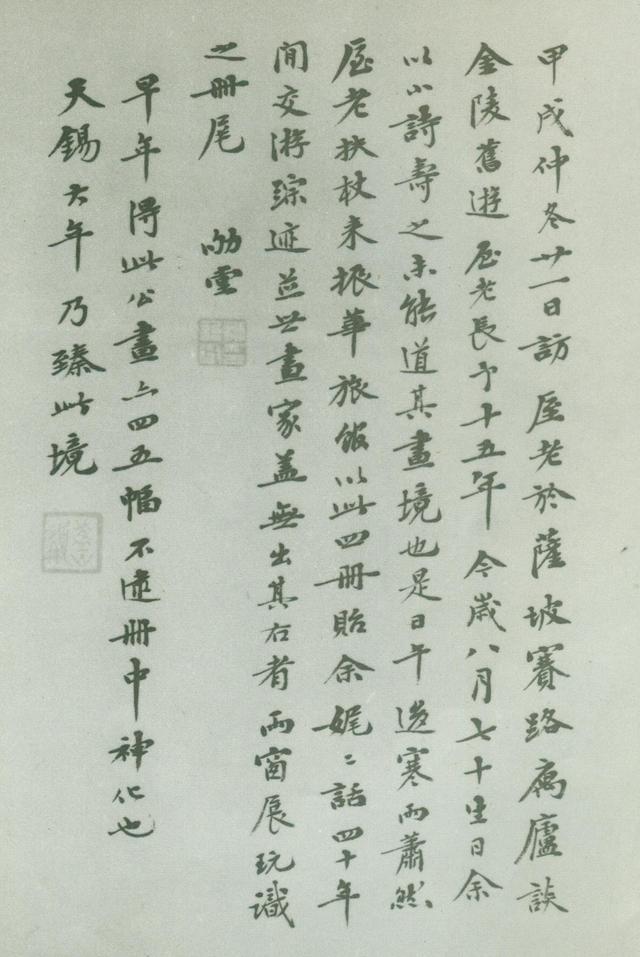 甲戌仲冬廿一日訪 㕓老於薩坡賽路寓廬談
金陵舊遊 㕓老長予十五年 今歲八月七十生日余
以小詩壽之未能道其畫境也是日午後寒雨蕭然
㕓老扶杖来振華旅館以此四冊貽余娓〻話四十年
間交游踪迹並世畫家蓋無出其右者 雨窗展玩識
之冊尾 勱堂
早年得此公畫亦四五幅不逮冊中神化也
天錫六年乃臻此境